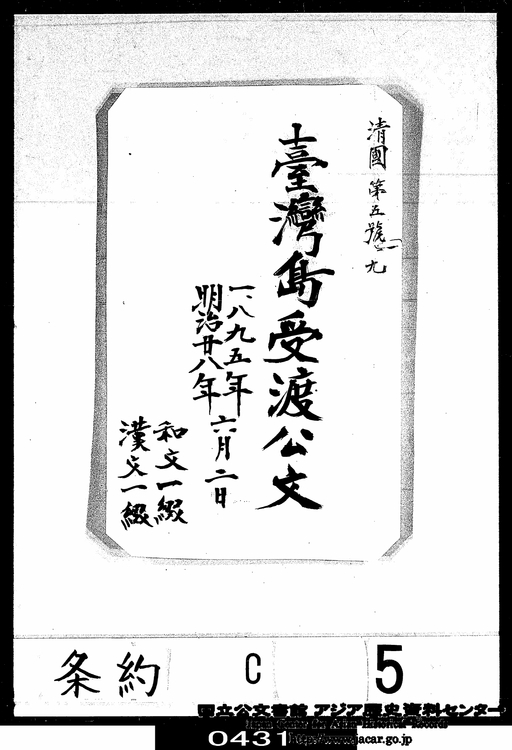 清國 第五號ノ一 九
臺灣島受渡公文
一八九五年
明治廿八年 六月二日
和文一綴
漢文一綴
条約 C 5
国立公文書館 アジア歴史資料センター
Japan Center for Asian Historical Records
http://www.jacar.go.jp
0431